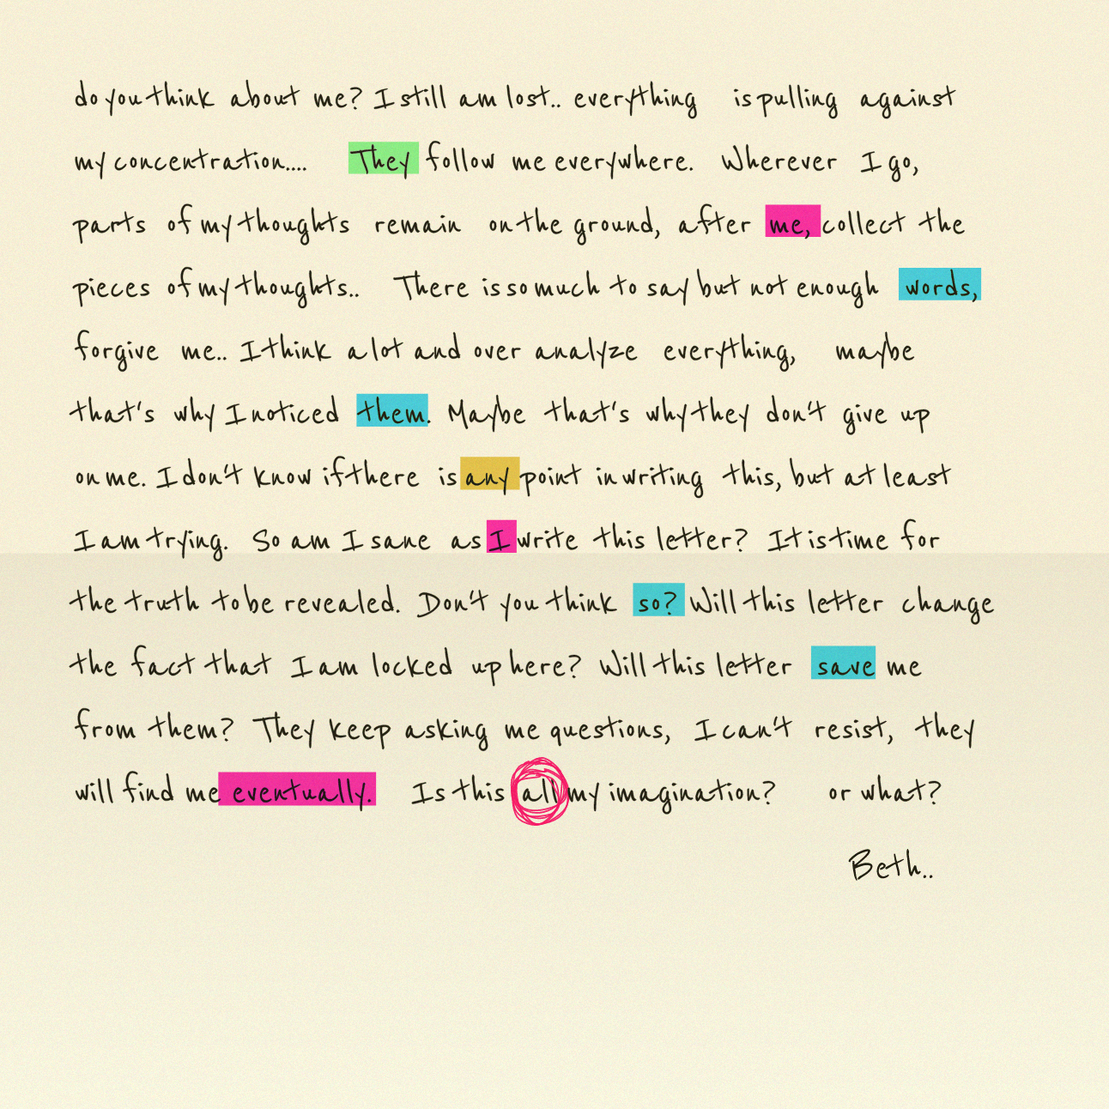 do you think about me? I still am lost.. everything is pulling against
my concentration.... They follow me everywhere. Wherever I go,
parts of my thoughts remain on the ground, after me, collect the
pieces of my thoughts.. There is so much to say but not enough words,
forgive me.. I think a lot and over analyze everything, maybe
that's why I noticed them. Maybe that's why they don't give up
on me. I don't know if there is any point in writing this, but at least
I am trying. So am I sane as I write this letter? It is time for
the truth to be revealed. Don't you think so? Will this letter change
the fact that I am locked up here? Will this letter save me
from them? They keep asking me questions, I can't resist, they
will find me eventually. Is this all my imagination? or what?
Beth..